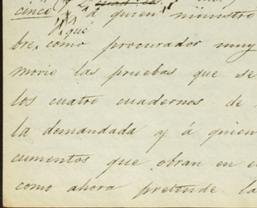 cinco y
á quien ministro
qué
bre, como procurador muy
morio las pruebas que se
los cuatro cuadernos de
la demandada y á quien
cumentos que obran en
como ahora pretende la